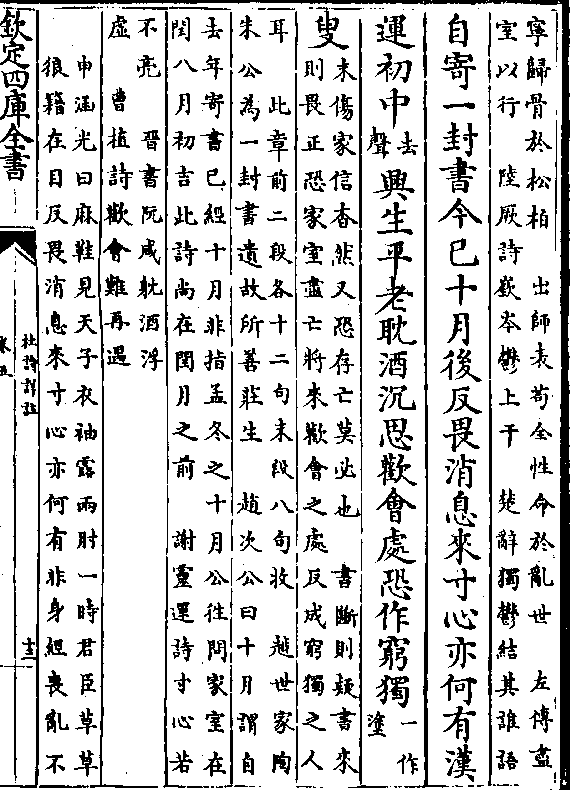 寧歸骨於松柏　出師表苟全性命於亂世　左傳盡
室以行　陸厥詩嶔岑鬱上干　楚辭獨鬱結其誰語
自寄一封書今已十月後反畏消息來寸心亦何有漢
運初中去聲興生平老耽酒沉思歡會處恐作窮獨一作塗
叟末傷家信杳然又恐存亡莫必也　書斷則疑書來
則畏正恐家室盡亡將來歡會之處反成窮獨之人
耳　此章前二段各十二句末段八句收　越世家陶
朱公為一封書遺故所善莊生　趙次公曰十月謂自
去年寄書已經十月非指孟冬之十月公往問家室在
閏八月初吉此詩尚在閏月之前　謝靈運詩寸心若
不亮　晉書阮咸躭酒浮
虛　曹植詩歡會難再遇
申涵光曰麻鞋見天子衣袖露兩肘一時君臣草草
狼籍在目反畏消息來寸心亦何有非身經喪亂不
欽定四庫全書
杜詩詳註
卷五
十三